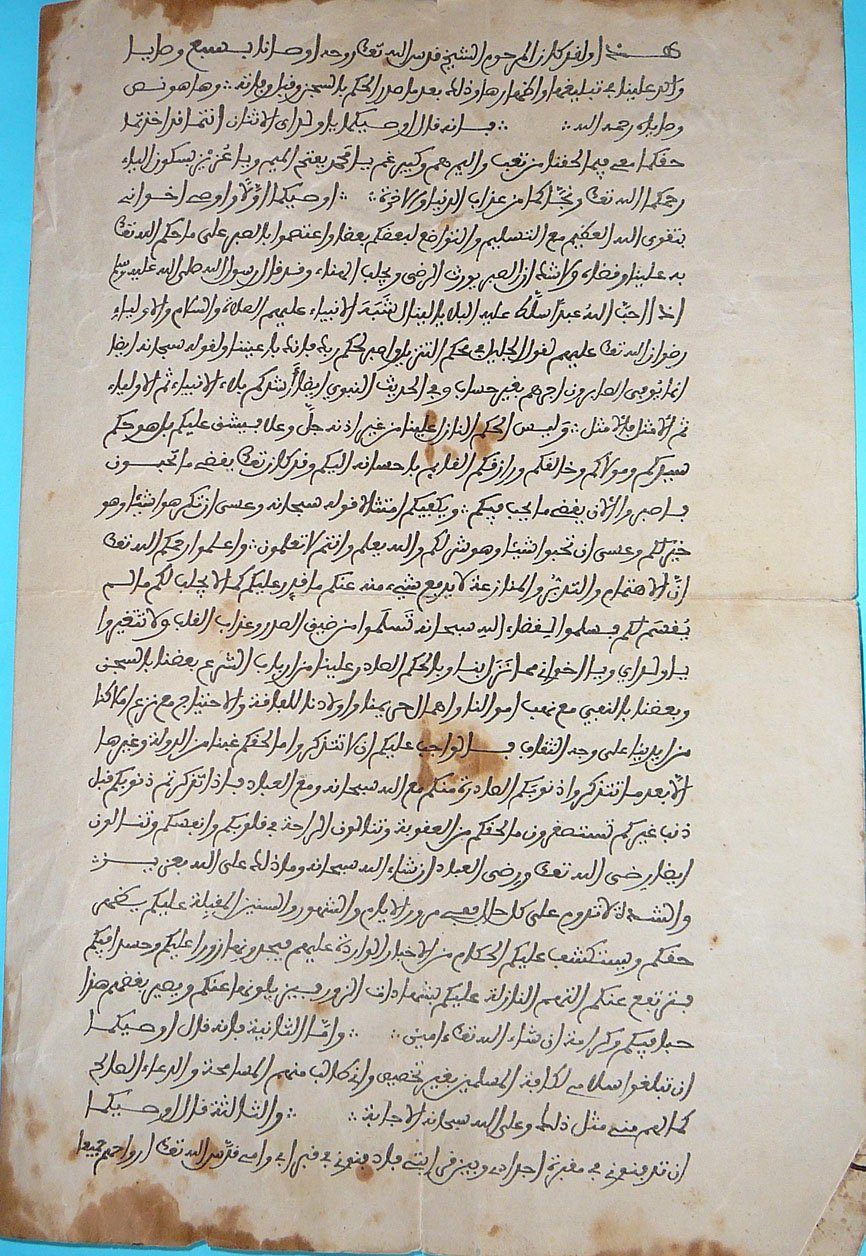 هذا ولقد كان المرحوم الشيخ قدس الله تعالى روحه اوصانا بسبع وصايا
واكد علينا في تبليغها واظهارها وذلك بعد ما صدر الحكم بالسجن وقبل وفاته وها هو نص
وصاياه رحمه الله فانه قال اوصيكما يا ولداي الاثنان انتما قد اخذتما
حقكما معي فيما لحقنا من تعب واليم هم وكبير غم يا فحمد بفتح الميم ويا عزيز بسكون الياء
رحمكما الله تعالى ونجاكما من عذاب الدنيا والاخرة اوصيكما اولا واوصي اخواني
بتقوى الله العظيم مع التسليم والتواضع لبعضكم بعضا واعتصموا بالصبر على ما حكم الله تعالى
به علينا وقضاه ولا شك ان الصبر يورث الرضى ويجلب الهناء وقد قال رسول الله صلى الله عليه وسلم
اذا احبّ اللهُ عبداً سلّط عليه البلايا لينال شَبَهَ الانبياء عليهم الصلاة والسلام والاولياءِ
رضوان الله تعالى عليهم لقول الجليل في محكم التنزيل واصبر لحكم ربك فانك باعيننا ولقوله سبحانه ايضا
انما يُوفى الصابرون اجرهم بغير حساب وفي الحديث النبوي ايضا أشدكم بلاء الانبياء ثم الاولياء
ثم الأمثل فالأمثل وَليس الحكم النازل علينا من غير اذنه جلّ وعلا فيشق عليكم بل هو حكم
سيدكم ومولاكم وخالقكم ورازقكم القايم باحسانه اليكم وقد كان تعالى يقضي ما تحبون
فاصبروا الآن يقضي ما يحب فيكم ويكفيكم امتثالا قوله سبحانه وعسى ان تكرهوا شيئا وهو
خير لكم وعسى ان تحبوا شيئا وهو شر لكم والله يعلم وانتم لا تعلمون واعلموا رحمكم الله تعالى
انّ الاهتمام والتدبّر والمنازعة لا يدفع شيء منه عنكم ما قدر عليكم كما لا يجلب لكم ما لم
يُقسَم لكم فسلموا لقضاء الله سبحانه تَسلَموا من ضيق الصدر وعذاب القلب ولا تتغيروا
يا ولداي ويا اخواني مما نَزَل بنا وبالحكم الصادر علينا من ارباب الشرع بعضنا بالسجن
وبعضنا بالنفي مع نهب اموالنا واهمال حريمنا واولادنا للفاقة والاحتياج مع نزع املاكنا
من ايدينا على وجه الثقاف فالواجب عليكم ان لا تتذكروا ما لحقكم غبنا من الدولة وغيرها
الّا بعد ما تتذكروا ذنوبكم الصادرة منكم مع الله سبحانه ومع العباد فاذا تفكرتم ذنوبكم قبل
ذنب غيركم تستصغرون ما لحقكم من العقوبة وتنالون الراحة في قلوبكم وانفسكم وتنالون
ايضا رضى الله تعالى ورضى العباد ان شاء الله سبحانه وما ذلك على الله بعزيز
والشدة لا تدوم على كل حال فمع مرور الايام والشهور والسنين المقبلة عليكم يظهر
حقكم ويستكشف عليكم الحكام من الاخبار الواردة عليهم فيجدونها زورا عليكم وحسدا فيكم
فترتفع عنكم التهم النازلة عليكم بشهادات الزور فحين يلونها عنكم ويصير بغضهم هذا
حبا فيكم وكرامة ان شاء الله تعالى ءامين وامّا الثانية فانه قال اوصيكما
ان تبلغوا سلامي لكافة المسلمين بغير تخصيص واني طالب منهم المسامحة والدعاء الصالح
كما لهم مني مثل ذلك وعلى الله سبحانه الاجابة والثالثة قال اوصيكما
ان تدفنوني في مقبرة اجدادي وبين قرابتي فادفنوني في قبر ابي وامي قدّس الله تعالى ارواحهم جميعا